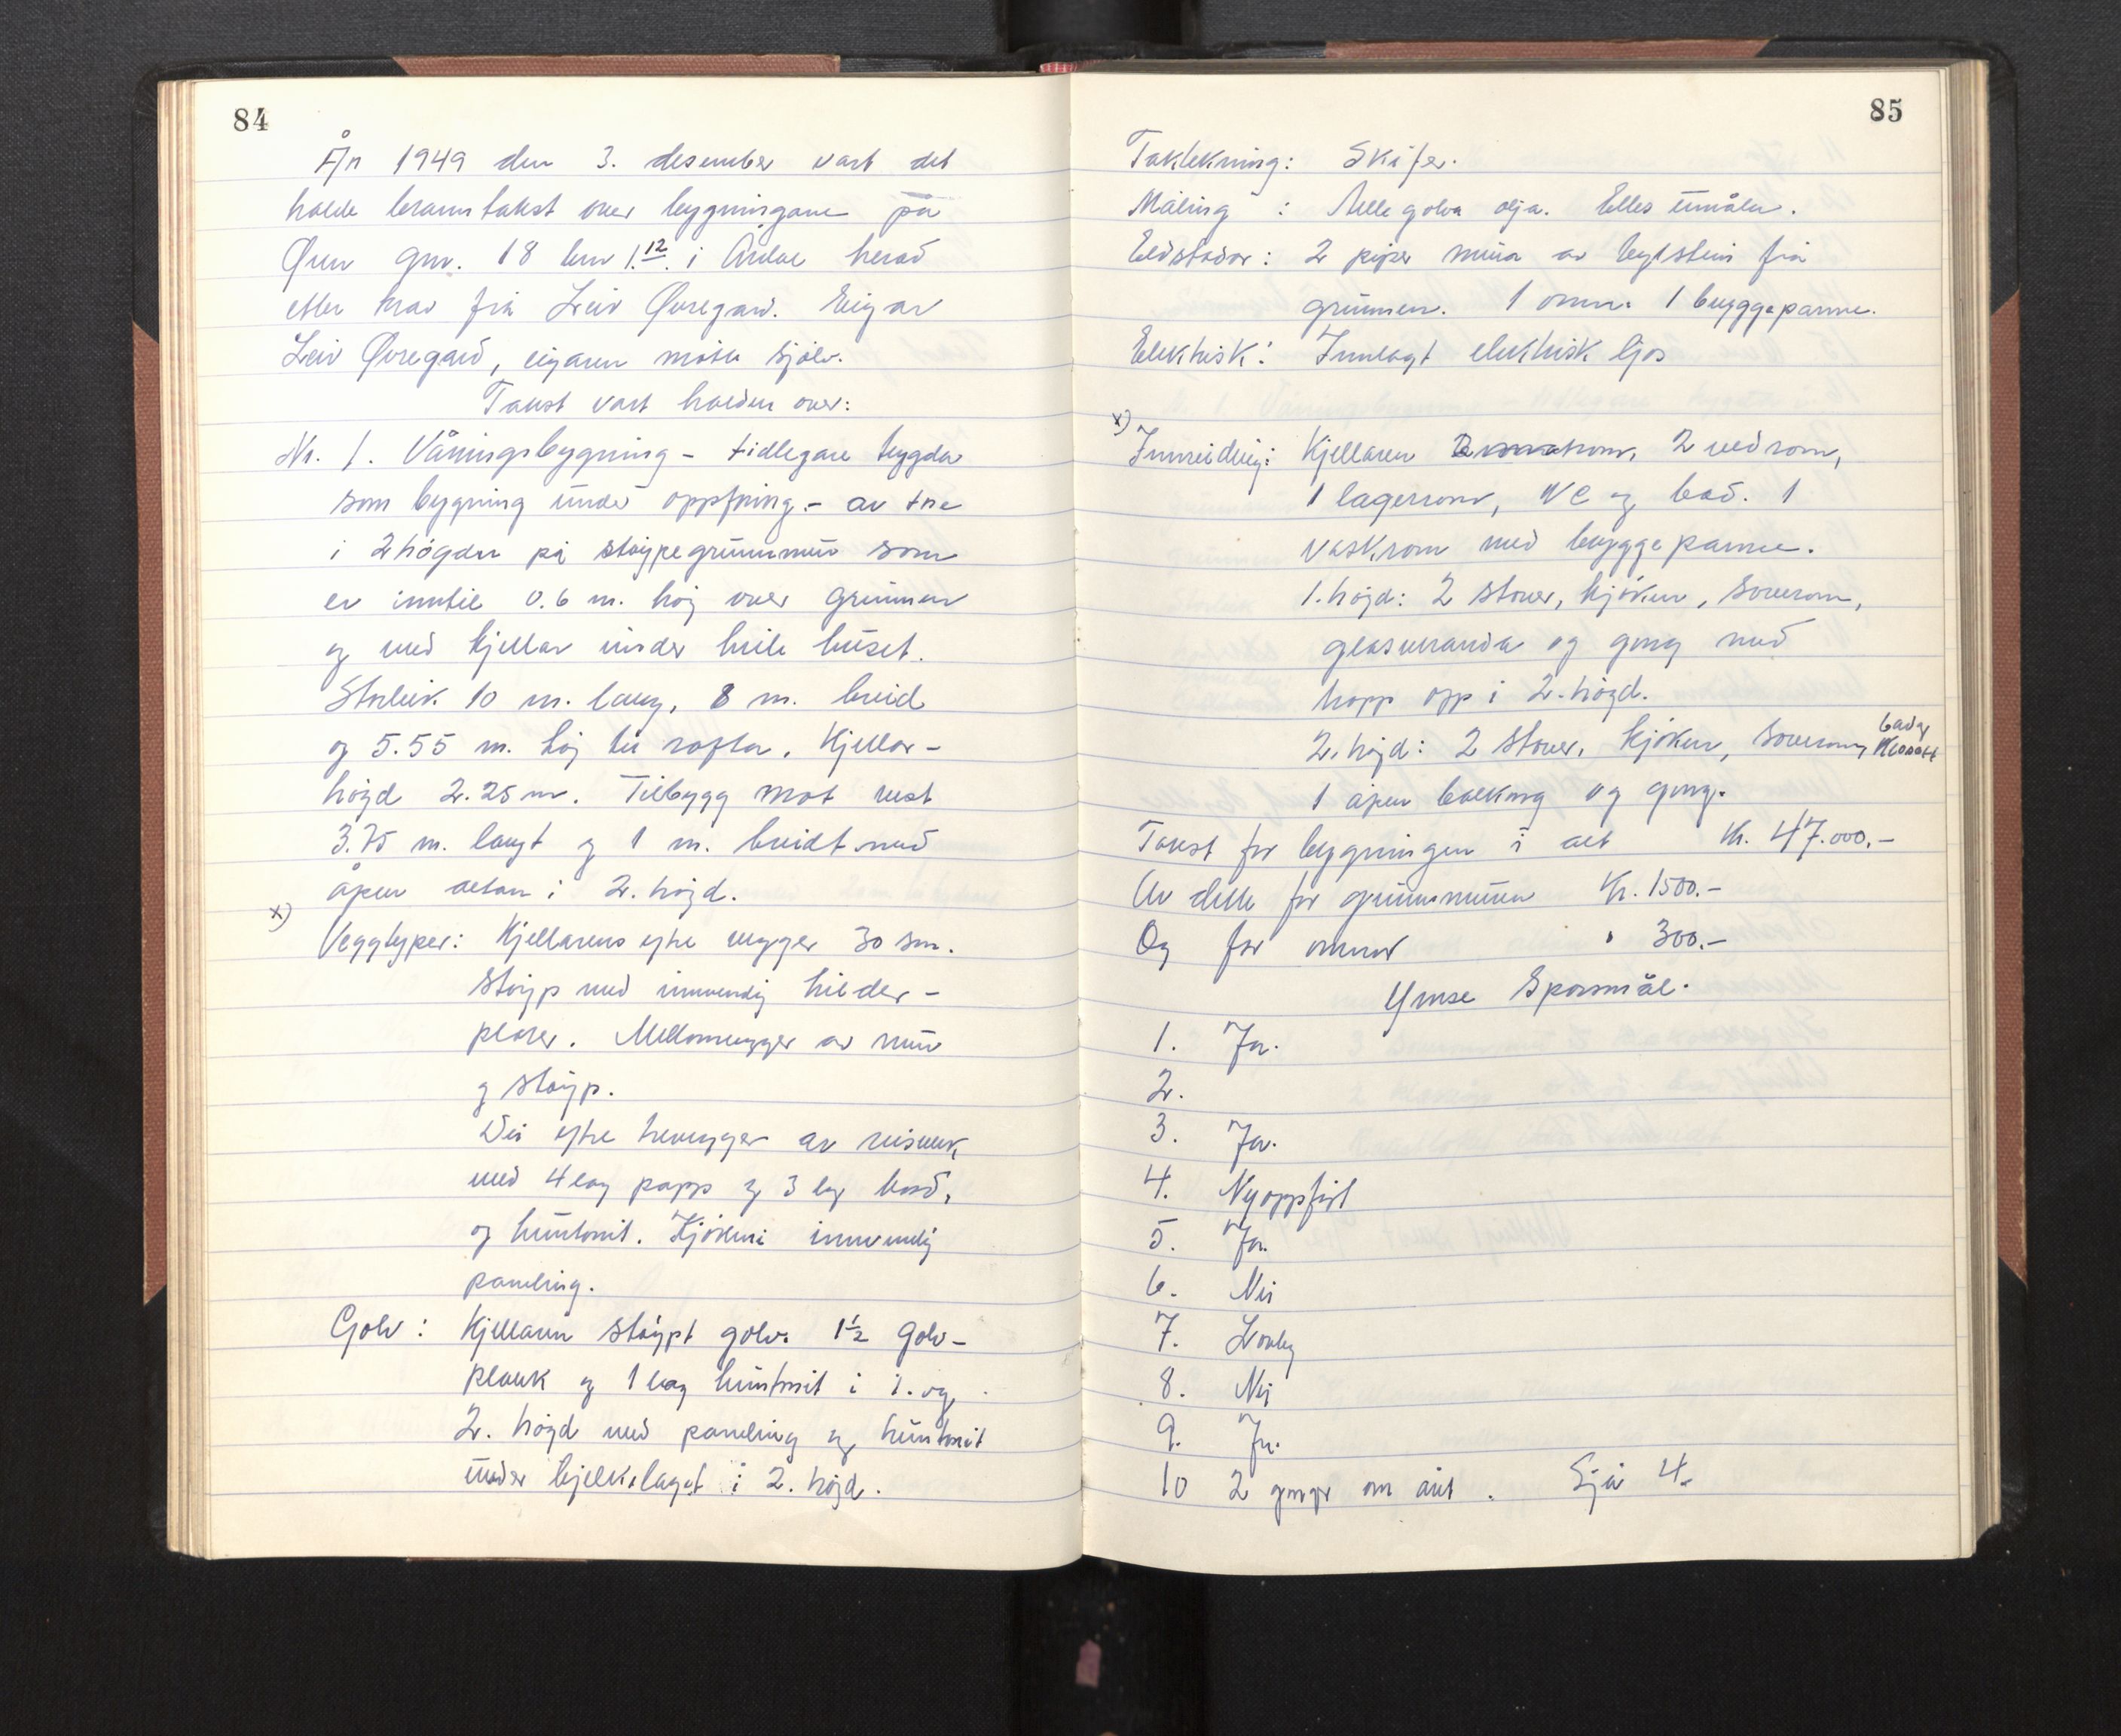 84
År 1949 den 3. desember vart det
halde branntakst over bygningane på
Øren gnr. 18 bnr 1.12. i Årdal herad
etter krav frå Leiv Øvregard. Eigar
Leiv Øvregard, eigaren møtte sjølv.
Takst vart halden over:
Nr. 1. Våningsbygning - tidlegare trygda
som bygning under oppføring - av tre
i 2 høgder på støypegrunnmur som
er inntil 0.6 m. høg over grunnen
og med kjellar under heile huset.
Storleik 10 m. lang, 8 m. breid
og 5.55 m. høg til rafta. Kjellar-
høgd 2.25 m. Tilbygg mot vest
3.75 m. langt og 1 m. breidt med
åpen altan i 2. høgd.
x)
Veggtyper: Kjellarens ytre vegger 30 sm.
støyp med innvendig
plater. Mellomvegger av mur
og støyp.
Dei ytre trevegger av reisverk
med 4 lag papp og 3 lag bord,
og huntonit. Kjøkeni innvendig
paneling.
Golv: Kjellaren støypt golv. 1½ golv-
plank og 1 lag huntonit i 1. og
2. høgd med paneling og huntonit
under bjelkelaget i 2. høgd.
85
Taktekning: Skifer.
Måling : Alle golva olja. Elles umåla.
Eldstadar: 2 piper mura av teglstein frå
grunnen. 1 omn. 1 bryggepanne.
Elektrisk: Innlagt elektrisk ljos
x)
Innreiding: Kjellaren 2 vedrom,
1 lagerrom, WC og bad. 1
vaskrom med bryggepanne.
1. høgd: 2 stover, kjøken, soverom,
glasveranda og gong med
tropp opp i 2. høgd.
2. høgd: 2 stover, kjøken, soverom, bad og klosett
1 åpen balkong og gong.
Takst for bygningen i alt Kr. 47.000.-
Av dette for grunnmuren Kr. 1500.-
Og for omnar " 300.-
Ymse Spørsmål.
1. Ja.
2.
3. Ja.
4. Nyoppført
5. Ja.
6. Nei
7. Lovleg
8. Nei
9. Ja.
10 2 gonger om året. Sjå 4.